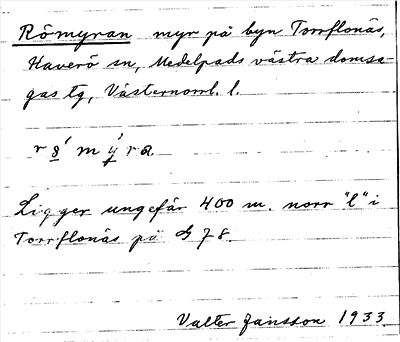 Römyran myr på byn Torrflonäs,
Haverö sn, Medelpads västra domsa-
gas tg, Västernorrl. l.
Ligger ungefär 400 m. norr "l" i
Torrflonäs på 78.
Valter Jansson 1933